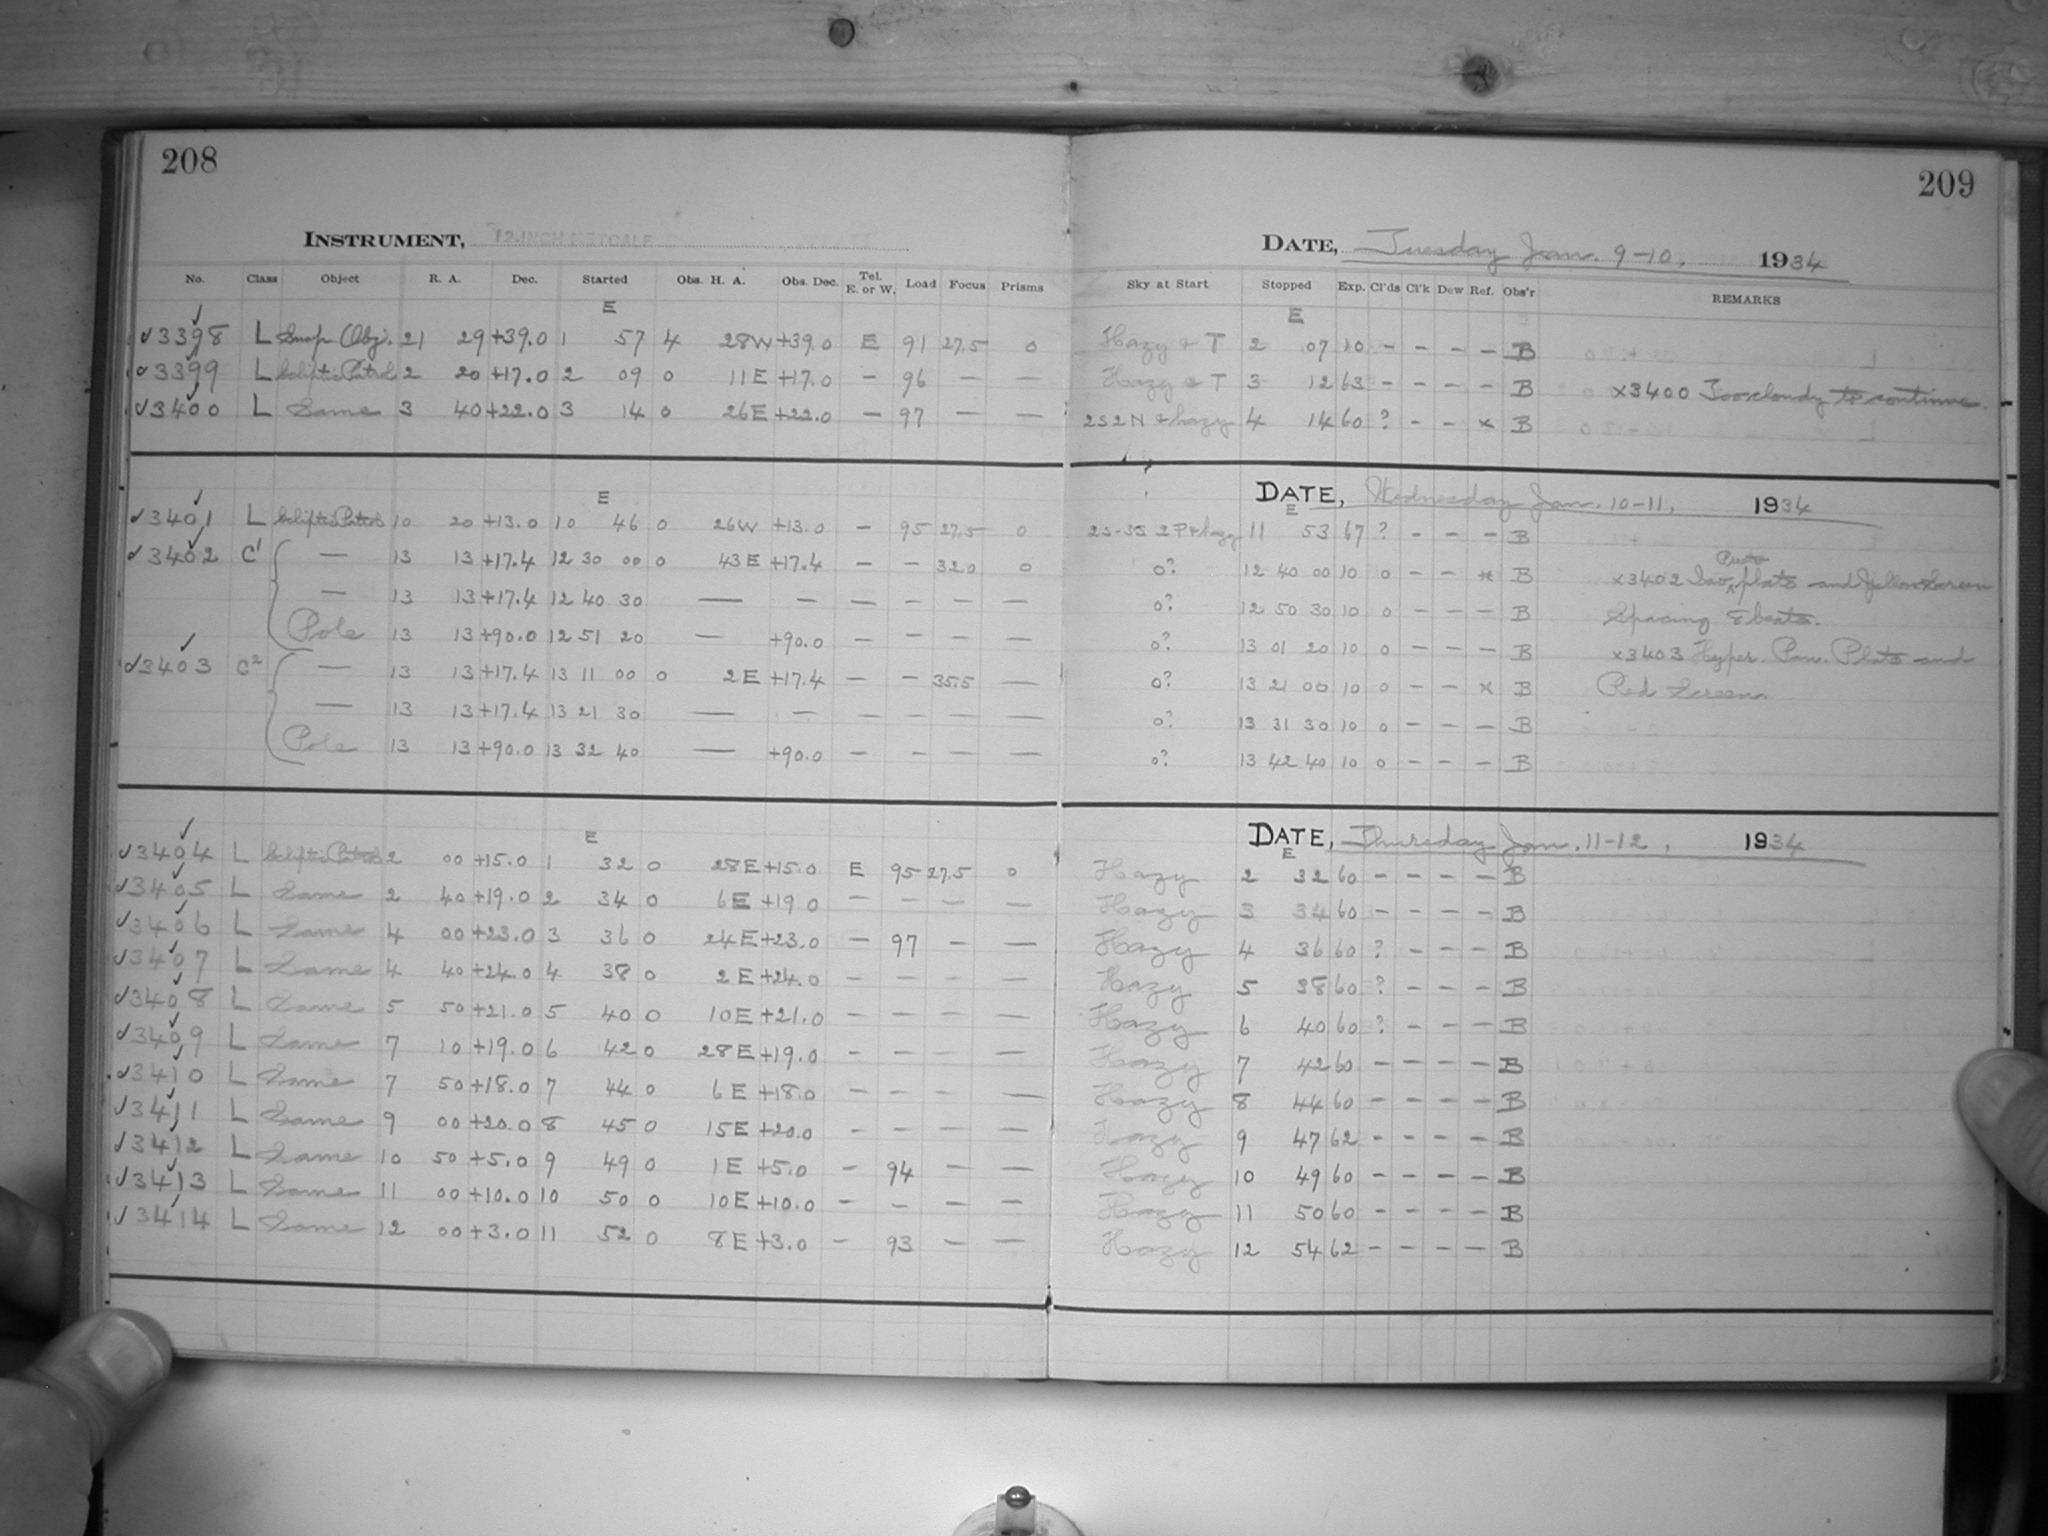 208
INSTRUMENT, 12-INCH METCALF
No. Class Object R. A. Dec. Started Obs. H. A. Obs. Dec. Tel. E. or W. Load Focus Prisms
E
✓3398 L Snap Obj. 21 29 +39.0 1 57 4 28W +39.0 E 91 27.5 0
✓3399 L Ecliptic Patrol 2 20 +17.0 2 09 0 11E +17.0 — 96 — —
✓3400 L Same 3 40 +22.0 3 14 0 26E +22.0 — 97 — —
E
✓3401 L Ecliptic Patrol 10 20 +13.0 10 46 0 26W +13.0 — 95 27.5 0
✓3402 C1 — 13 13 +17.4 12 30 00 0 43E +17.4 — — 32.0 0
— 13 13 +17.4 12 40 30 — — — — — —
Pole 13 13 +90.0 12 51 20 — +90.0 — — — —
✓3403 C2 — 13 13 +17.4 13 11 00 0 2E +17.4 — — 35.5 —
— 13 13 +17.4 13 21 30 — — — — — —
Pole 13 13 +90.0 13 32 40 — +90.0 — — — —
E
✓3404 L Ecliptic Patrol 2 00 +15.0 1 32 0 28E +15.0 E 95 27.5 0
✓3405 L Same 2 40 +19.0 2 34 0 6E +19.0 — — — —
✓3406 L Same 4 00 +23.0 3 36 0 24E +23.0 — 97 — —
✓3407 L Same 4 40 +24.0 4 38 0 2E +24.0 — — — —
✓3408 L Same 5 50 +21.0 5 40 0 10E +21.0 — — — —
✓3409 L Same 7 10 +19.0 6 42 0 28E +19.0 — — — —
✓3410 L Same 7 50 +18.0 7 44 0 6E +18.0 — — — —
✓3411 L Same 9 00 +20.0 8 45 0 15E +20.0 — — — —
✓3412 L Same 10 50 +5.0 9 49 0 1E +5.0 — 94 — —
✓3413 L Same 11 00 +10.0 10 50 0 10E +10.0 — — — —
✓3414 L Same 12 00 +3.0 11 52 0 8E +3.0 — 93 — —
209
DATE, Tuesday Jan. 9-10, 1934
Sky at Start Stopped Exp. Cl'ds Cl'k Dew Ref. Obs'r REMARKS
E
Hazy & T 2 07 10 — — — — B
Hazy & T 3 12 63 — — — — B x3400 Too cloudy to continue.
2S2N & hazy 4 14 60 ? — — x B
DATE, Wednesday Jan. 10-11, 1934
E
2S-3S 2P & hazy 11 53 67 ? — — — B
0? 12 40 00 10 0 — — x B x3402 Iso. plate and Yellow Screen
0? 12 50 30 10 0 — — — B Spacing 8 beats.
0? 13 01 20 10 0 — — — B x3403 Hyper. Pan. Plate and
0? 13 21 00 10 0 — — x B Red Screen
0? 13 31 30 10 0 — — — B
0? 13 42 40 10 0 — — — B
DATE, Thursday Jan. 11-12, 1934
E
Hazy 2 32 60 — — — — B
Hazy 3 34 60 — — — — B
Hazy 4 36 60 ? — — — B
Hazy 5 38 60 ? — — — B
Hazy 6 40 60 ? — — — B
Hazy 7 42 60 — — — — B
Hazy 8 44 60 — — — — B
Hazy 9 47 62 — — — — B
Hazy 10 49 60 — — — — B
Hazy 11 50 60 — — — — B
Hazy 12 54 62 — — — — B